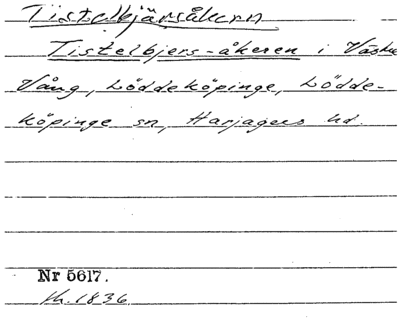 Tistelbjärsåkern
Tistelbjers-åkeren i Västra
Vång, Löddeköpinge, Lödde-
köpinge sn, Harjagers hd.
Nr 5617.
1836